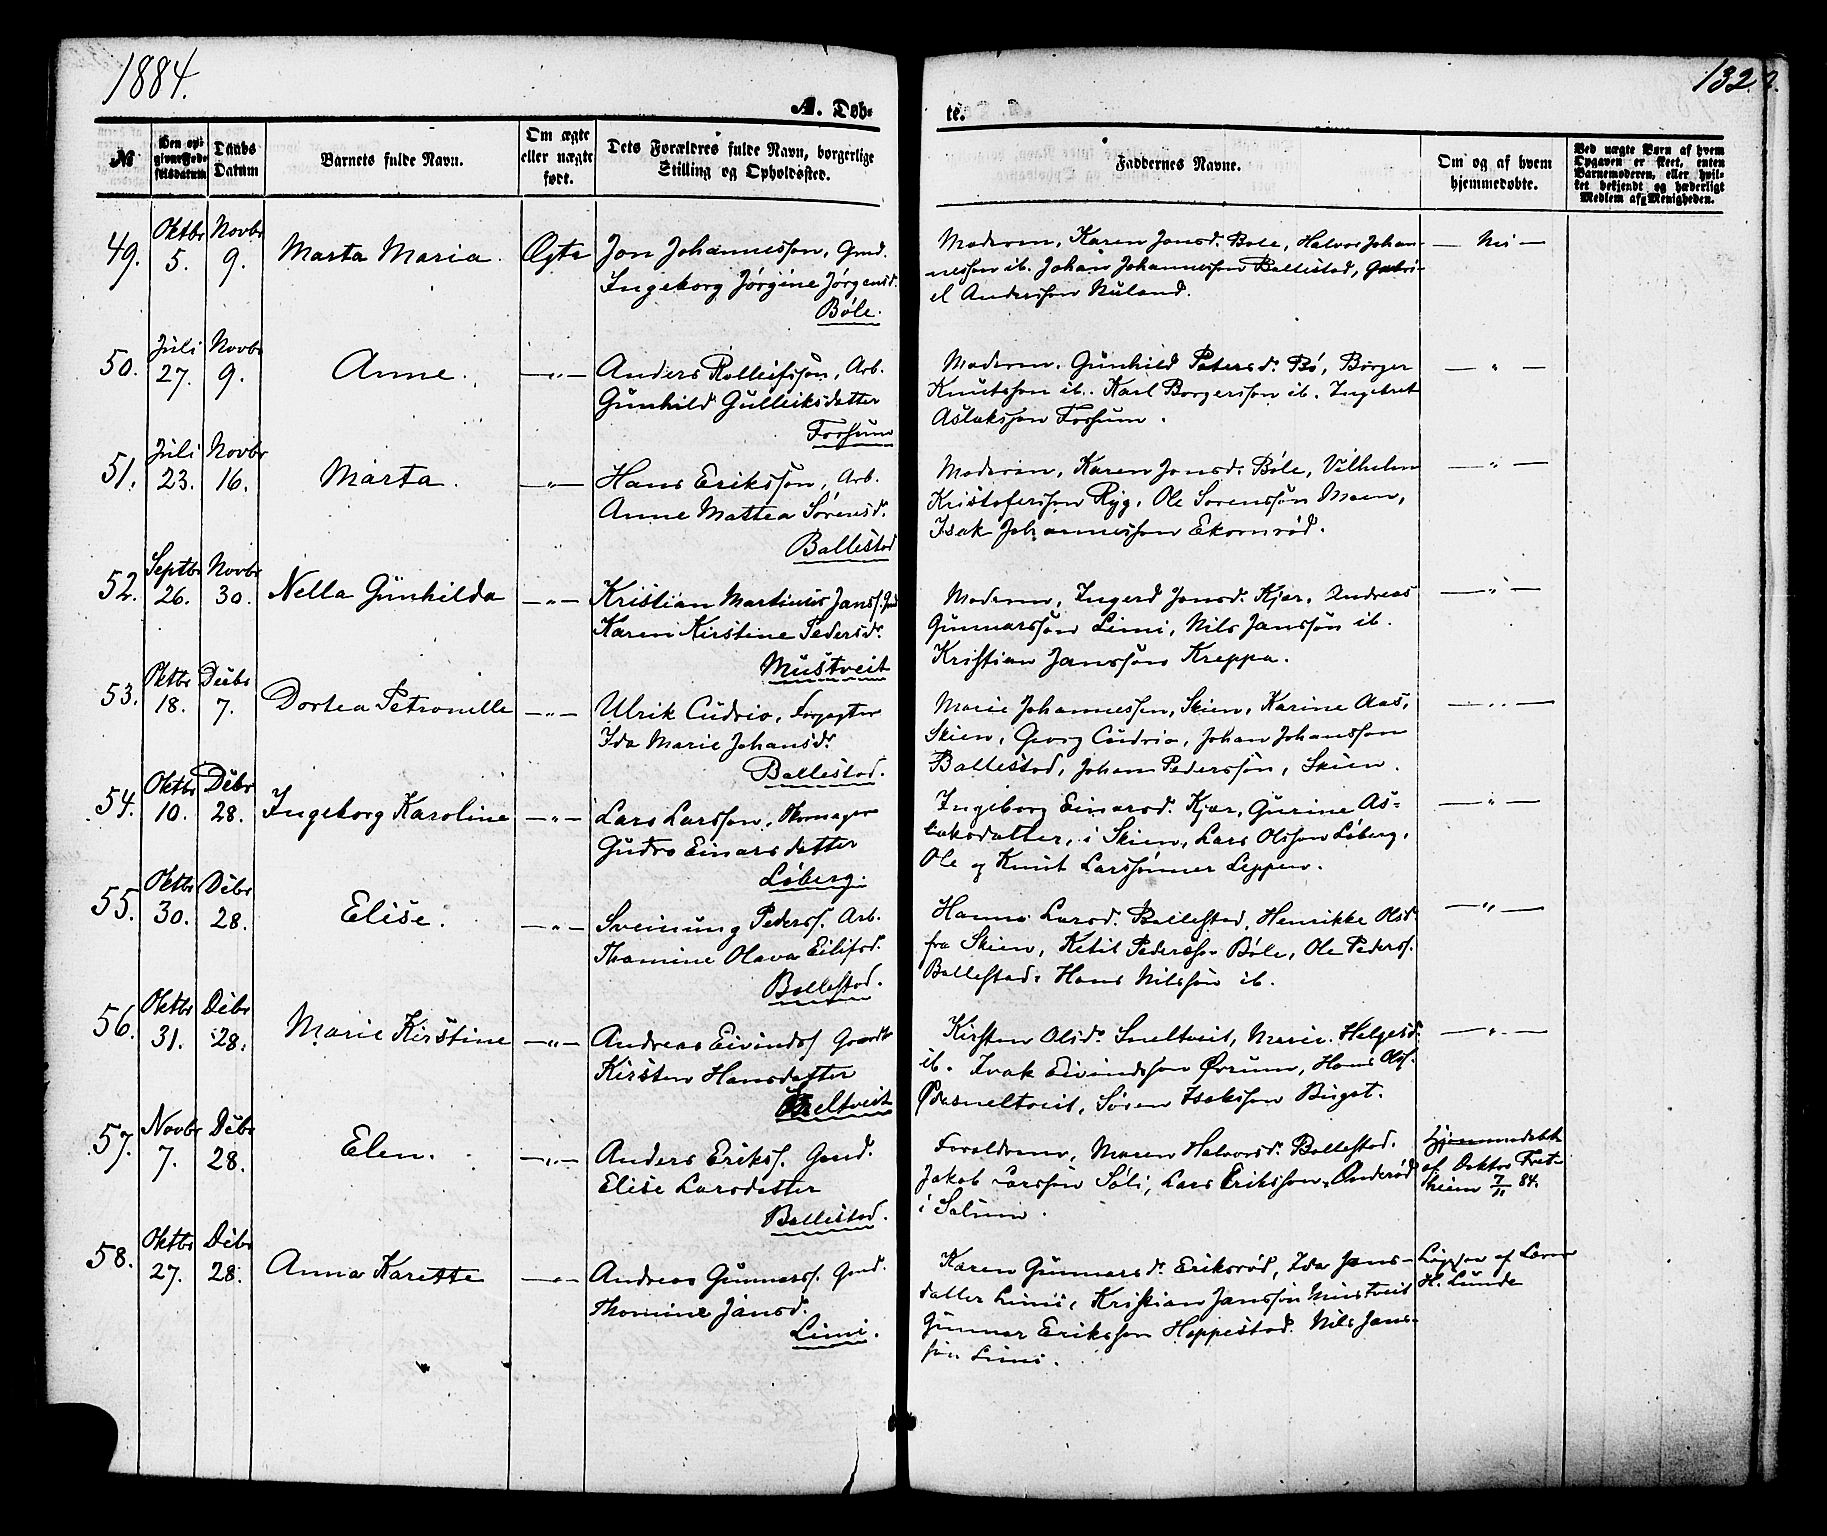 1884.
132.
A. Døb-
te.
№
Den opgivne Fødselsdatum
Daabs Datum
Barnets fulde Navn.
Om ægte eller uægte født.
Dets Forældres fulde Navn, borgerlige Stilling og Opholdssted.
Faddernes Navne.
Om og af hvem hjemmedøbte.
Ved uægte Børn af hvem Opgaven er skeet, enten Barnemoderen, eller hvilket bekjendt og hæderligt Medlem af Menigheden.
49. Oktbr 5. Novbr 9. Marta Maria. Ægte
Jon Johannesson, Gmd.
Ingeborg Jørgine Jørgensd.
Bøle.
Moderen, Karen Jonsd. Bøle, Halvor Johan-
nesson ib. Johan Johannesson Ballestad, Gabri-
el Andersson Nuland.
— Nei —
50. Juli 27. Novbr 9. Anne. —"—
Anders Rolleifsson, Arb.
Gunhild Gulleiksdatter
Fossum
Moderen. Gunhild Petersd. Bø, Børger
Knutsson ib. Karl Borgersson ib. Ingebret
Aslaksson Fossum.
— " —
51. Juli 23. Novbr 16. Marta. —"—
Hans Eriksson, Arb.
Anne Mattea Sørensd.
Ballestad
Moderen, Karen Jonsd. Bøle, Vilhelm
Kristofersson Ryg, Ole Sørensson Moen,
Isak Johannesson Ekornrød.
— " —
52. Septbr 26. Novbr 30. Nella Gunhilda —"—
Kristian Martinius Janss. Gmd
Karen Kirstine Pedersd.
Mustveit
Moderen, Ingerd Jonsd. Kjær, Andreas
Gunnarsson Limi, Nils Jansson ib.
Kristian Jansson Kreppa.
— " —
53. Oktbr 18. Decbr 7. Dortea Petronelle —"—
Ulrik Cudrio, Forpagter
Ida Marie Johansd.
Ballestad.
Marie Johannessen, Skien, Karine Aas,
Skien, Georg Cudrio, Johan Johansson
Ballestad, Johan Pedersson, Skien.
— " —
54. Oktbr 10. Debr 28. Ingeborg Karoline —"—
Lars Larsson, Skomager
Gudro Einarsdatter
Løberg.
Ingeborg Einarsd. Kjær, Gurine As-
laksdatter, i Skien, Lars Olsson Løberg,
Ole og Knut Larssønner Leppen.
— " —
55. Oktbr 30. Debr 28. Elise. —"—
Sveinung Pederss. Arb.
Thomine Olava Eilifsd.
Ballestad.
Hanna Larsd. Ballestad, Henrikke Olsd
fra Skien, Ketil Pederss. Bøle, Ole Pederss.
Ballestad. Hans Nilsson ib.
— " —
56. Oktbr 31. Debr 28. Marie Kirstine —"—
Andreas Eivindss
Kirsten Hansdatter
Sneltveit
Kirsten Olsd. Sneltveit, Marie Helgesd.
ib. Isak Eivindsson Øvrum, Hans Olss.
Ødesneltveit, Søren Isaksson Buget.
— " —
57. Novbr 7. Debr 28. Elen. —"—
Anders Erikss. Gmd.
Elise Larsdatter
Ballestad.
Forældrene, Maren Halvorsd. Ballestad.
Jakob Larsson Søli, Lars Eriksson Onderød
i Solum.
Hjemmedøbt
af Doktor Fret-
heim 7/11 84.
58. Oktbr 27. Debr 28. Anna Karette —"—
Andreas Gunnarss. Gmd.
Thomine Jansd.
Limi.
Karen Gunnarsd. Eriksrød, Ida Jans-
datter Limi, Kristian Jansson Mustveit
Gunnar Eriksson Heppestad. Nils Jans-
son Limi.
af Lærer
H. Lunde